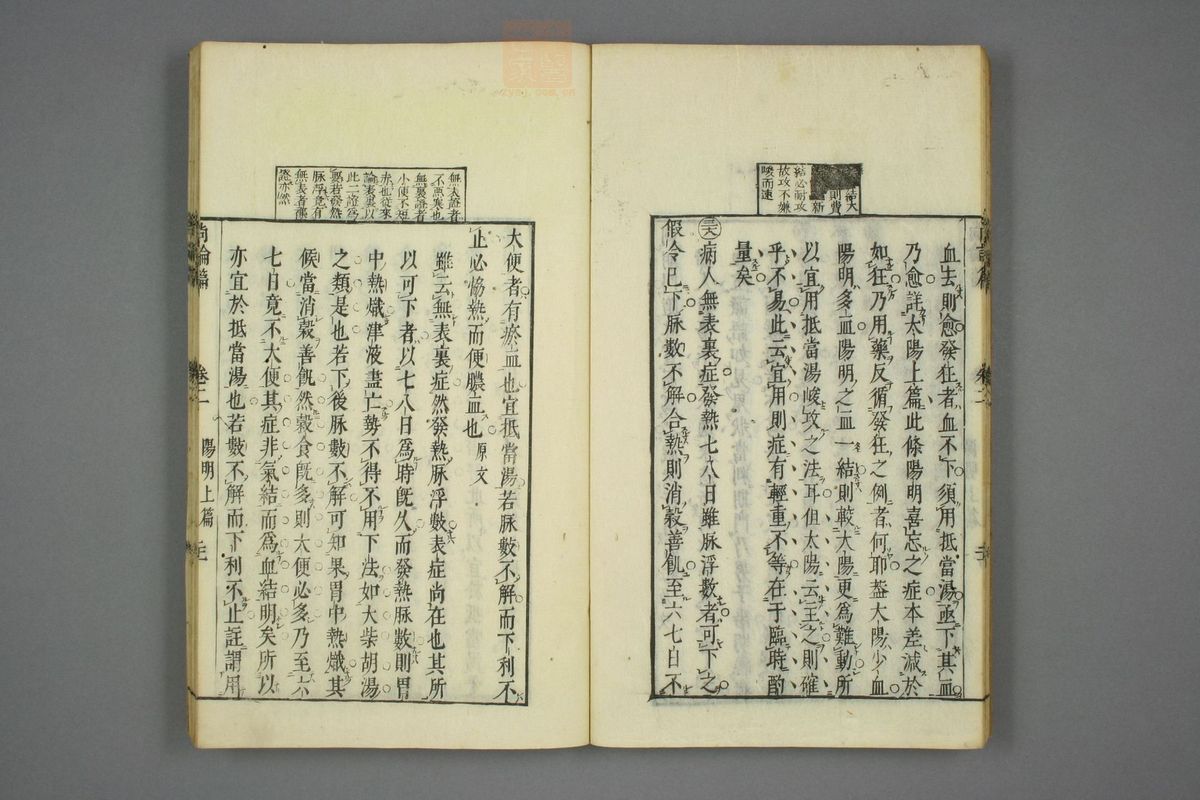 血去則愈發狂者血不下須用抵當湯亟下其血
乃愈詳太陽上篇此條陽明喜忘之症本差減於
如狂乃用藥反循發狂之例者何耶蓋太陽少血
陽明多血陽明之血一結則較太陽更爲難動所
以宜用抵當湯峻攻之法耳但太陽云主之則確
乎不易此云宜用則症有輕重不等在于臨時酌
量矣
病人無表裏症發熱七八日雖脉浮數者可下之
假令已下脉數不解合熱則消穀善飢至六七日不
結大
則費
新
結必耐攻
故攻不嫌
峻而速
尚論篇
卷二
大便者有瘀血也宜抵當湯若脉數不解而下利不
止必恊熱而便膿血也 原文
雖云無表裏症然發熱脉浮數表症尚在也其所
以可下者以七八日爲時旣久而發熱脉數則胃
中熱熾津液盡亡勢不得不用下法如大柴胡湯
之類是也若下後脉數不解可知果胃中熱熾其
候當消穀善飢然穀食旣多則大便必多乃至六
七日竟不大便其症非氣結而爲血結明矣所以
亦宜於抵當湯也若數不解而下利不止註謂用
無表證者
不惡寒也
無裏證者
小便不短
赤也從來
論表裏以
此二證爲
要若發熱
脉浮竟有
無表者藥
證亦然
尚論篇
卷二
陽明上篇
wzyxj.com.cn